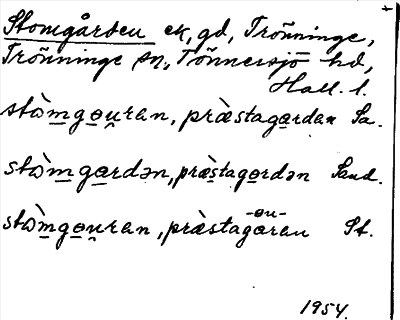 Stomgården ek, gd, Trönninge,
Trönninge sn, Tönnersjö hd,
Hall. l.
stòmgou̯ran, præ̀stagardan Sa.
stòmgardən, præ̀stagardən Sand.
stòmgou̯ran, præ̀stagåran St.
-ou-
1954.